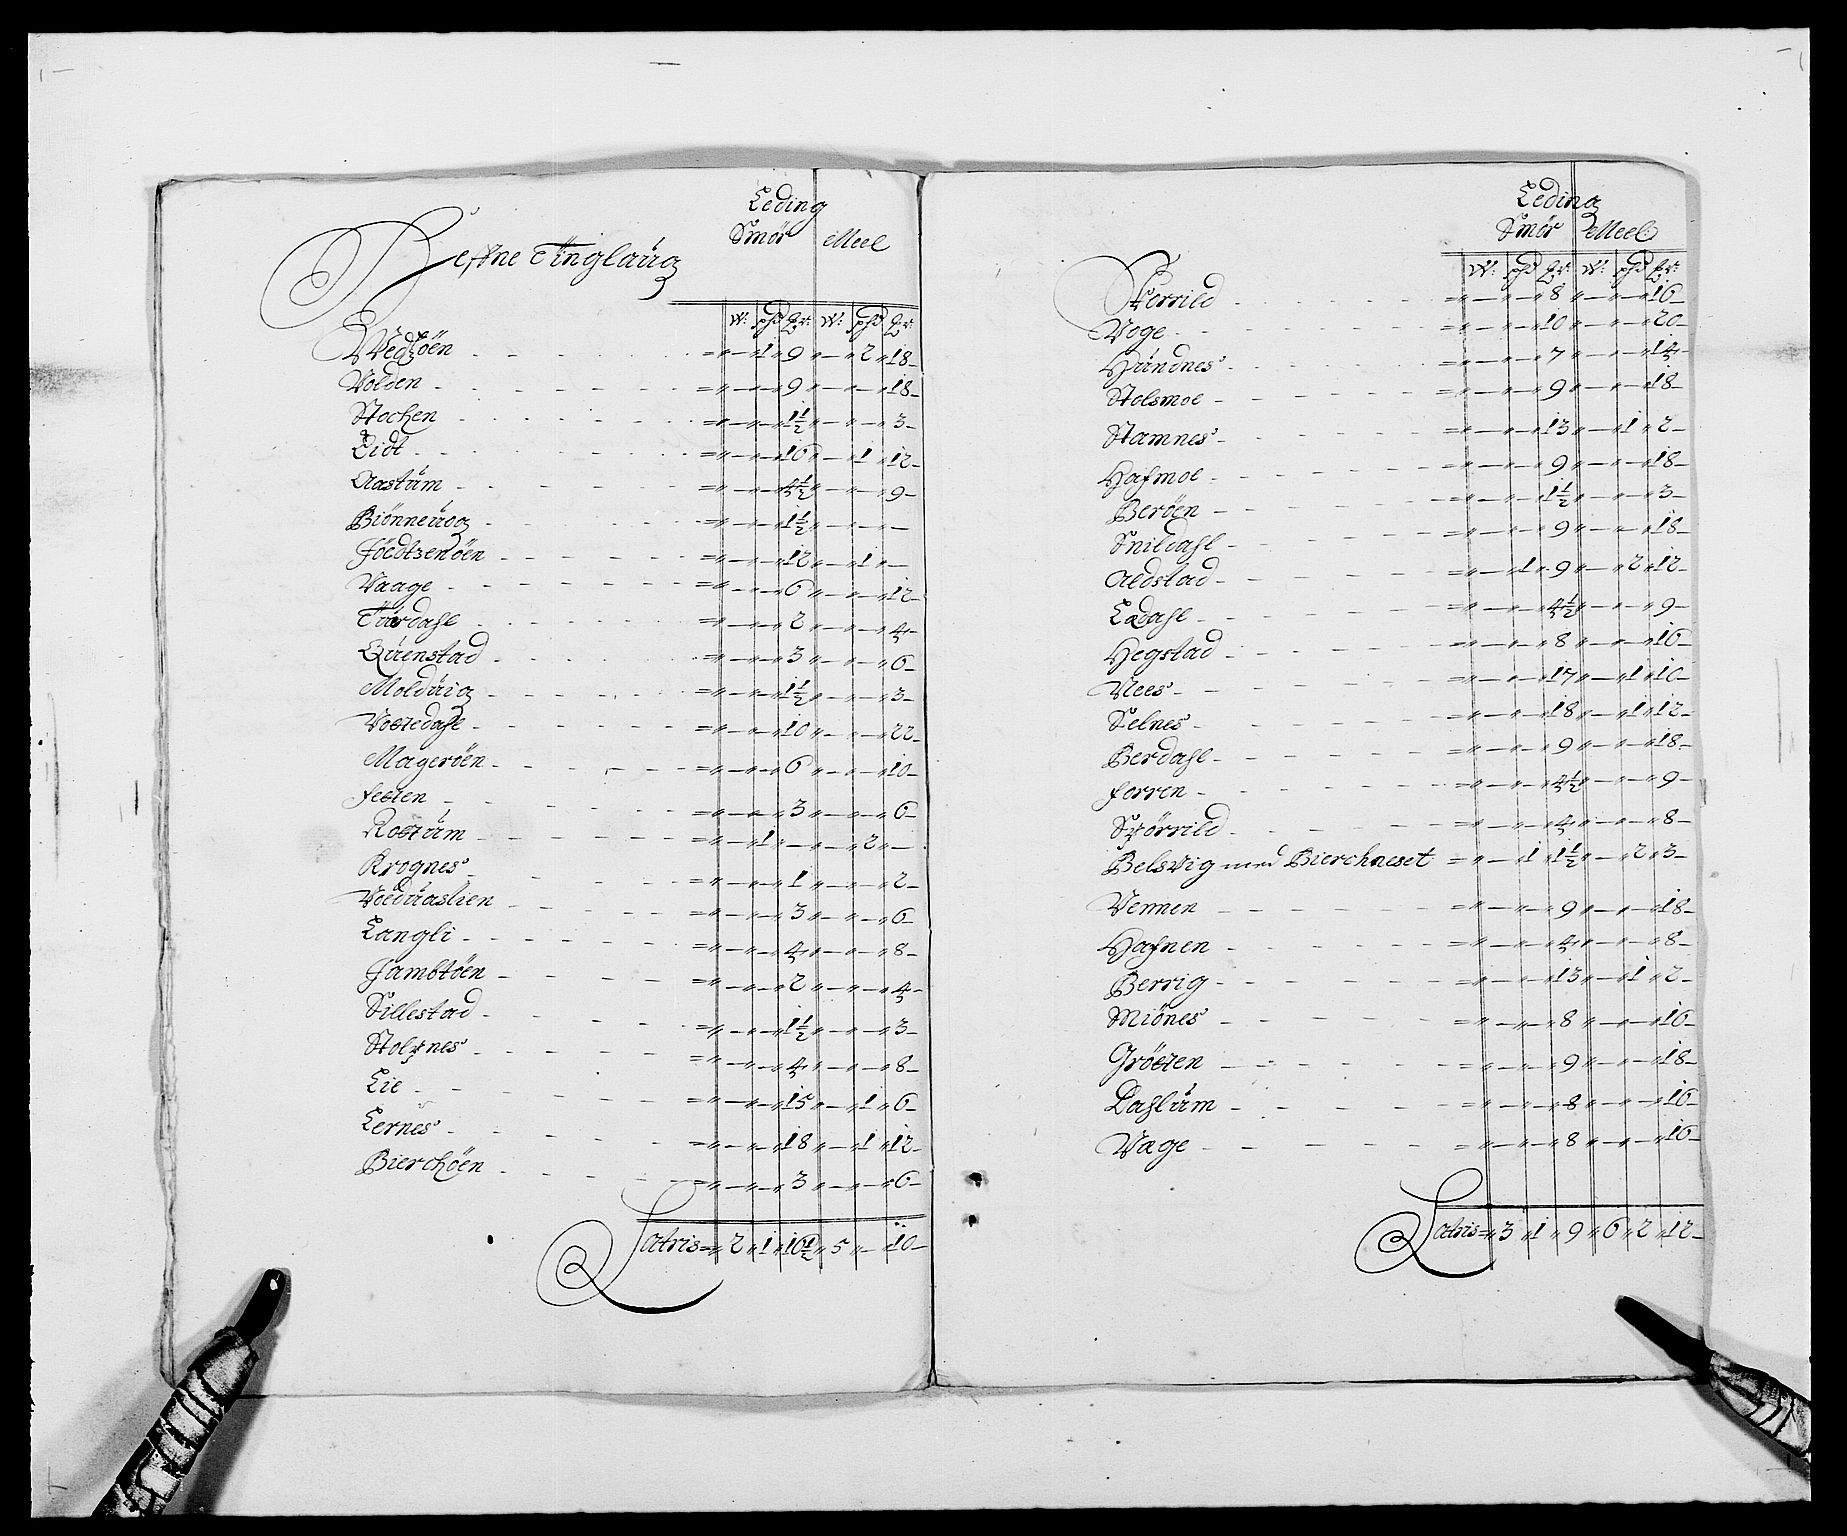 Leding
Smør Meel
Befne Tinglaug
W: ℔d mr: W: ℔d mr:
Vedøen = „ — „ 1 „ 9 „ — „ 2 „ 18
Volden = „ — „ — „ 9 „ — „ — „ 18
Stochen = „ — „ — „ 1½ „ — „ — „ 3
Eidt = „ — „ — „ 16 „ — „ 1 „ 12
Aastum = „ — „ — „ 4½ „ — „ — „ 9
Biönneuog = „ — „ — „ 1½ „ — „ — „ —
Jöedtzenöen = „ — „ — „ 12 „ — „ 1 „ —
Vaage = „ — „ — „ 6 „ — „ — „ 12
Türdahl = „ — „ — „ 2 „ — „ — „ 4
Quenstad = „ — „ — „ 3 „ — „ — „ 6
Molduig = „ — „ — „ 1½ „ — „ — „ 3
Vottedahl = „ — „ — „ 10 „ — „ — „ 22
Magerøen = „ — „ — „ 6 „ — „ — „ 10
Fetten = „ — „ — „ 3 „ — „ — „ 6
Rottum = „ — „ 1 „ — „ — „ 2 „ —
Krognes = „ — „ — „ 1 „ — „ — „ 2
Voeduaslien = „ — „ — „ 3 „ — „ — „ 6
Langli = „ — „ — „ 4 „ — „ — „ 8
Jambtöen = „ — „ — „ 2 „ — „ — „ 4
Sillestad = „ — „ — „ 1½ „ — „ — „ 3
Stolznes = „ — „ — „ 4 „ — „ — „ 8
Lie = „ — „ — „ 15 „ — „ 1 „ 6
Lernes = „ — „ — „ 18 „ — „ 1 „ 12
Bierchöen = „ — „ — „ 3 „ — „ — „ 6
Latris = „ 2 „ 1 „ 10½ „ 5 „ — „ 10
Leding
Smør Meel
W: ℔d mr: W: ℔d mr:
Werrild = „ — „ — „ 8 „ — „ — „ 16
Woge = „ — „ — „ 10 „ — „ — „ 20
Hundnes = „ — „ — „ 7 „ — „ — „ 14
Stolsmoe = „ — „ — „ 9 „ — „ — „ 18
Stamnes = „ — „ — „ 13 „ — „ 1 „ 2
Hafmoe = „ — „ — „ 9 „ — „ — „ 18
Berøen = „ — „ — „ 1½ „ — „ — „ 3
Snildahl = „ — „ — „ 9 „ — „ — „ 18
Aedstad = „ — „ 1 „ 9 „ — „ 2 „ 12
Lædahl = „ — „ — „ 4½ „ — „ — „ 9
Hegstad = „ — „ — „ 8 „ — „ — „ 16
Nees = „ — „ — „ 17 „ — „ 1 „ 10
Selnes = „ — „ — „ 18 „ — „ 1 „ 12
Berdahl = „ — „ — „ 9 „ — „ — „ 18
Forren = „ — „ — „ 4½ „ — „ — „ 9
Størrild = „ — „ — „ 4 „ — „ — „ 8
Belsvig med Bierchneset = „ — „ 1 „ 1½ „ — „ 2 „ 3
Vennen = „ — „ — „ 9 „ — „ — „ 18
Hafnen = „ — „ — „ 4 „ — „ — „ 8
Berrig = „ — „ — „ 13 „ — „ 1 „ 2
Miönes = „ — „ — „ 8 „ — „ — „ 16
Gröeten = „ — „ — „ 9 „ — „ — „ 18
Dahlum = „ — „ — „ 8 „ — „ — „ 16
Væge = „ — „ — „ 8 „ — „ — „ 16
Latris = „ 3 „ 1 „ 9 „ 6 „ 2 „ 12